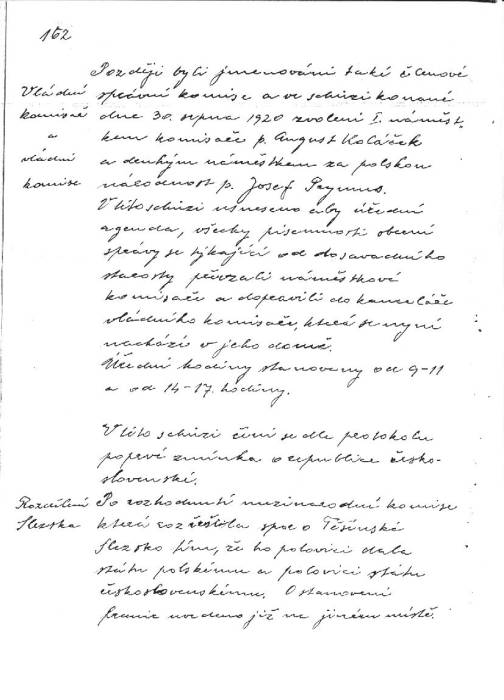 162
Později byli jmenováni také členové
Vládní
komisař
a
vládní
komise
správní komise a ve schůzi konané
dne 30. srpna 1920 zvoleni I. náměst-
kem komisaře p. August Koláček
a druhým náměstkem za polskou
národnost p. Josef
V této schůzi usneseno aby úřední
agenda, všechy písemnosti obecní
správy se týkající od dosavadního
starosty převzali náměstkové
komisaře a dopravili do kanceláře
vládního komisaře, která se nyní
nachází v jeho domě.
Úřední hodiny stanoveny od 9-11
a od 14-17. hodiny.
V této schůzi činí se dle protokolu
poprvé zmínka o republice česko-
slovenské.
Rozdělení
Slezska
Po rozhodnutí mezinárodní komise
která rozřešila spor o Těšínské
Slezsko tím, že ho polovici dala
státu polskému a polovici státu
československému. O stanovení
hranic uvedeno již na jiném místě.